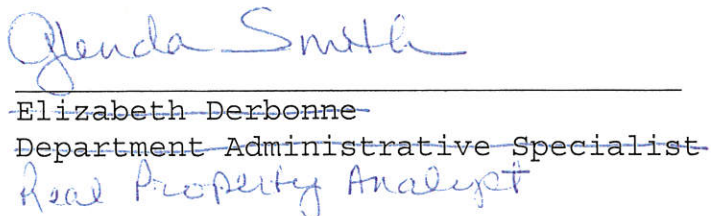 Glenda Smith
Elizabeth Derbonne
Department Administrative Specialist
Real Property Analyst